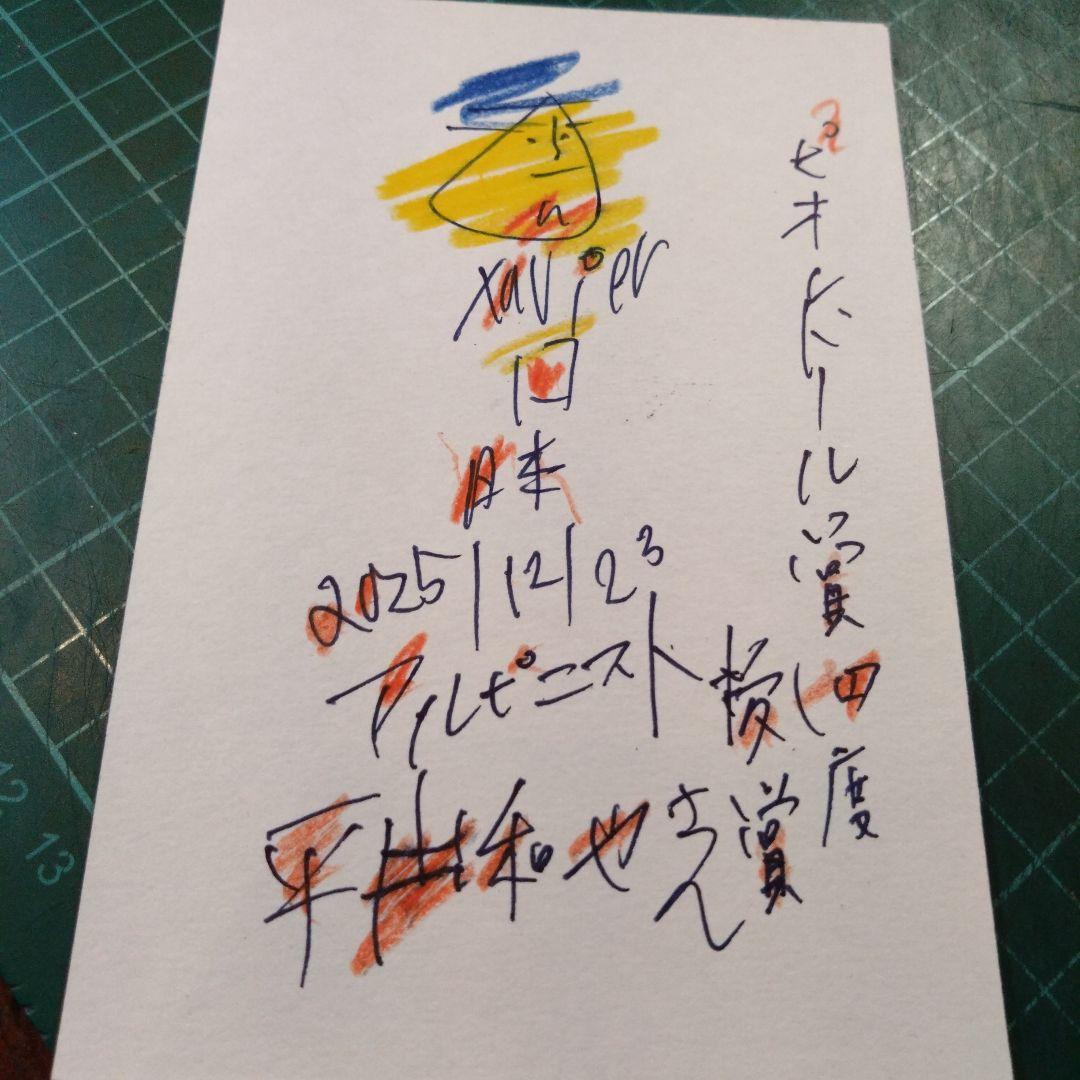 xavier
日本
2025/12/23
アルピニスト
平出和也さん
ピオドール賞四度
授賞
12
13